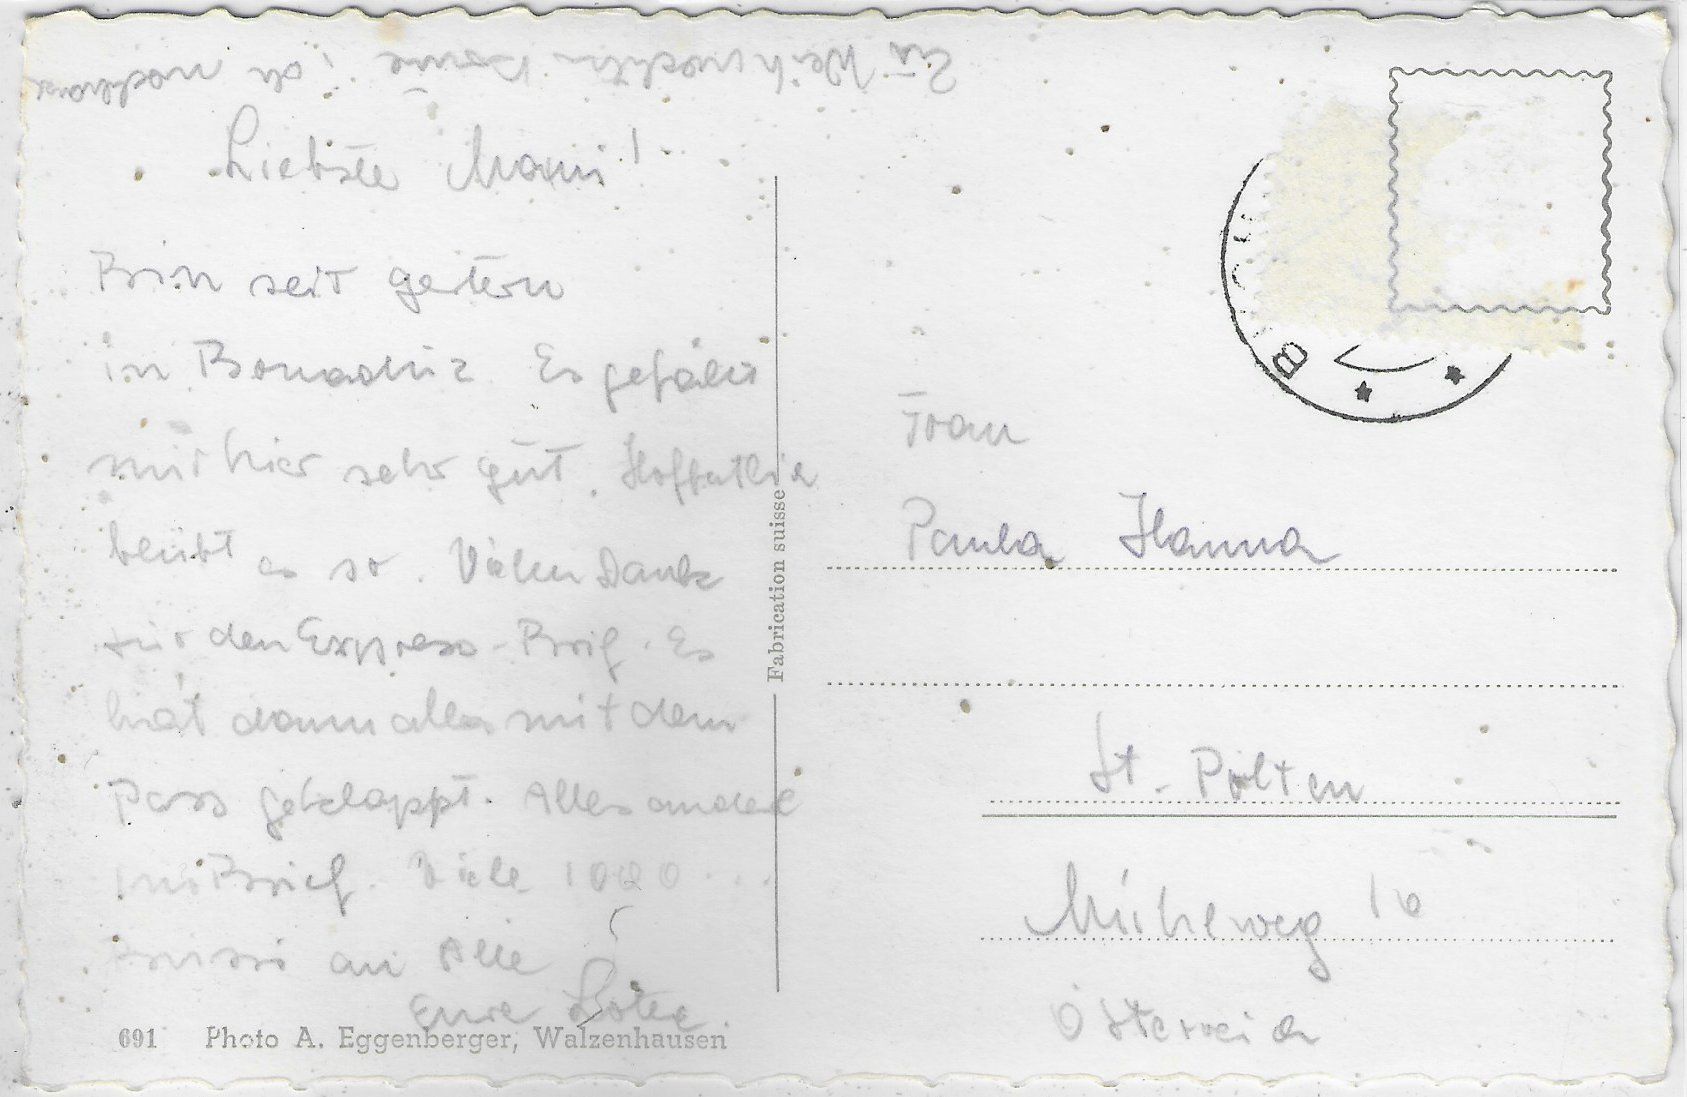 Zu Weihnachten komme ich nachhause
Liebste Mami!
Bin seit gestern
in Bonaduz. Es gefällt
mir hier sehr gut. Hoffentlich
bleibt es so. Vielen Dank
für den Express-Brief. Es
hat dann alles mit dem
Pass geklappt. Alles andere
ins Brief. Viele 1000...
Bussi an Alle
Eure
691 Photo A. Eggenberger, Walzenhausen
Fabrication suisse
B
Frau
Paula Hanna
St. Pölten
Mühlweg
Österreich